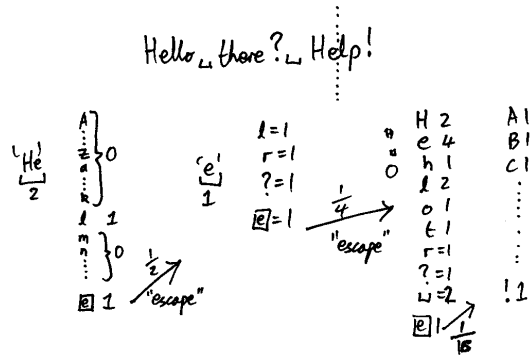 Hello␣there?␣Help!
'He'
2
A
z
a
k
} 0
l 1
m
n
} 0
[e] 1
1/2
"escape"
'e'
1
l=1
r=1
?=1
[e]=1
1/4
"escape"
" "
0
H 2
e 4
h 1
l 2
o 1
t 1
r=1
?=1
␣=2
[e] 1
A 1
B 1
C 1
! 1